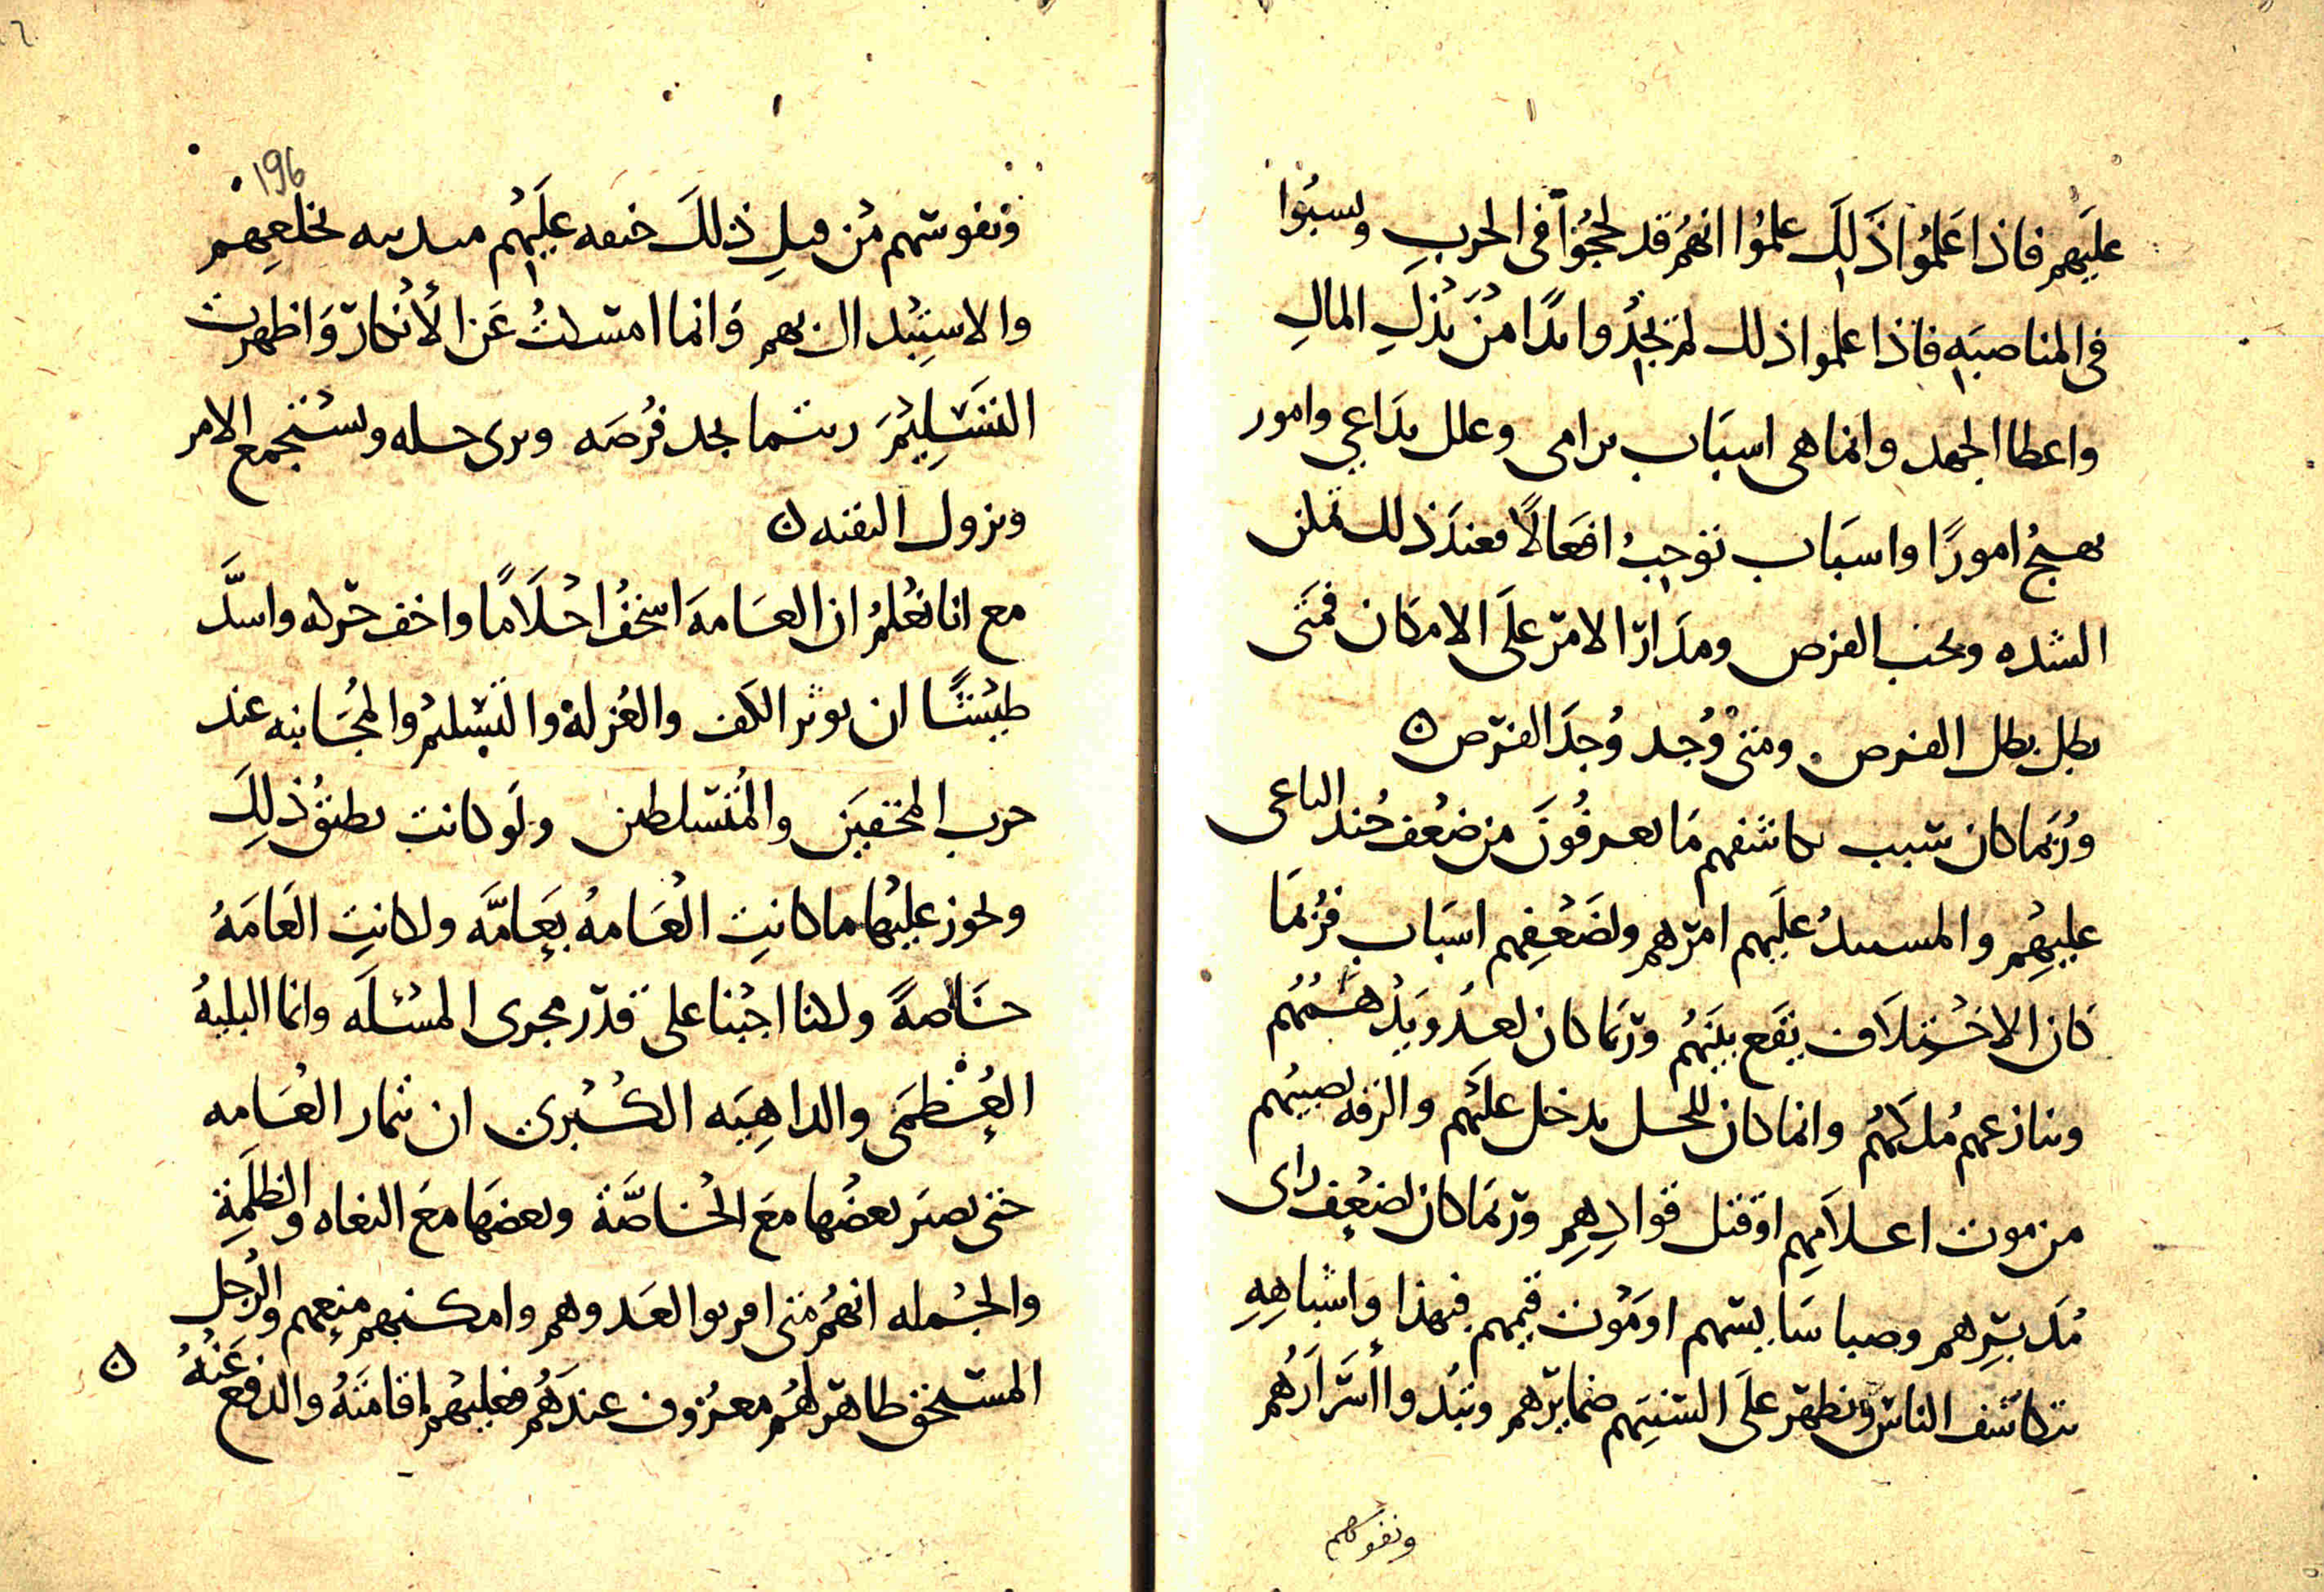 عليهم فاذا علموا ذلك علموا انهم قد لحجوا فى الحرب ونسبوا
فى المناصبه فاذا علموا ذلك لم يجدوا بدا من بذل المال
واعطا الجهد وانما هى اسباب ترامى وعلل تداعي وامور
تهيج امورا واسباب توجب افعالا فعند ذلك تمكن
الشده وتجب الفرص ومدار الامر على الامكان فمتى
بطل بطل الفرص ومتى وجد وجد الفرص ه
وربما كان سبب تكاشفهم ما يعرفون من ضعف جند الباغى
عليهم والمستبد عليهم امرهم ولضعفهم اسباب فربما
كان الاختلاف يقع بينهم وربما كان لعدو يدهمهم
وينازعهم ملكهم وانما كان للخلل يدخل عليهم والرقه تصيبهم
من موت اعلامهم او قتل قوادهم وربما كان لضعف راى
مدبرهم وصبا سايسهم او موت قيمهم فبهذا واشباهه
يتكاشف الناس وتظهر على السنتهم ضمايرهم وتبدوا اسرارهم
ونفوسهم
196
ونفوسهم من قبل ذلك حنقه عليهم متدينه بخلعهم
والاستبدال بهم وانما امسكت عن الانكار واظهرت
التسليم ريثما تجد فرصه وترى خلله ويستجمع الامر
وتزول التقيه ه
مع انا نعلم ان العامه اسخف احلاما واخف حركه واشد
طيشا ان توثر الكف والعزلة والتسليم والمجانبه عند
حرب المحقين والمتسلطين ولو كانت تطيق ذلك
ويجوز عليها ما كانت العامه بعامه ولكانت العامه
خاصة ولكنا اجبنا على قدر مجرى المسئله وانما البليه
العظمى والداهيه الكبرى ان تمار العامه
حتى يصير بعضها مع الخاصة وبعضها مع البغاه والظلمة
والجمله انهم متى امنوا العدوهم وامكنهم منعهم والرجل
المستحق ظاهر لهم معروف عندهم فعليهم اقامته والدفع
عنه ه